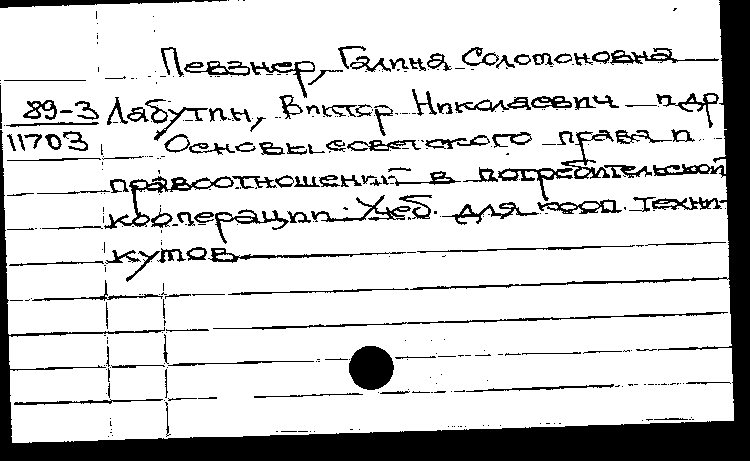 Певзнер, Галина Соломоновна
89-3 Лабутин, Виктор Николаевич и др.
11703 Основы советского права и
правоотношений в потребительской
кооперации: Учеб. для кооп. техни-
кумов.